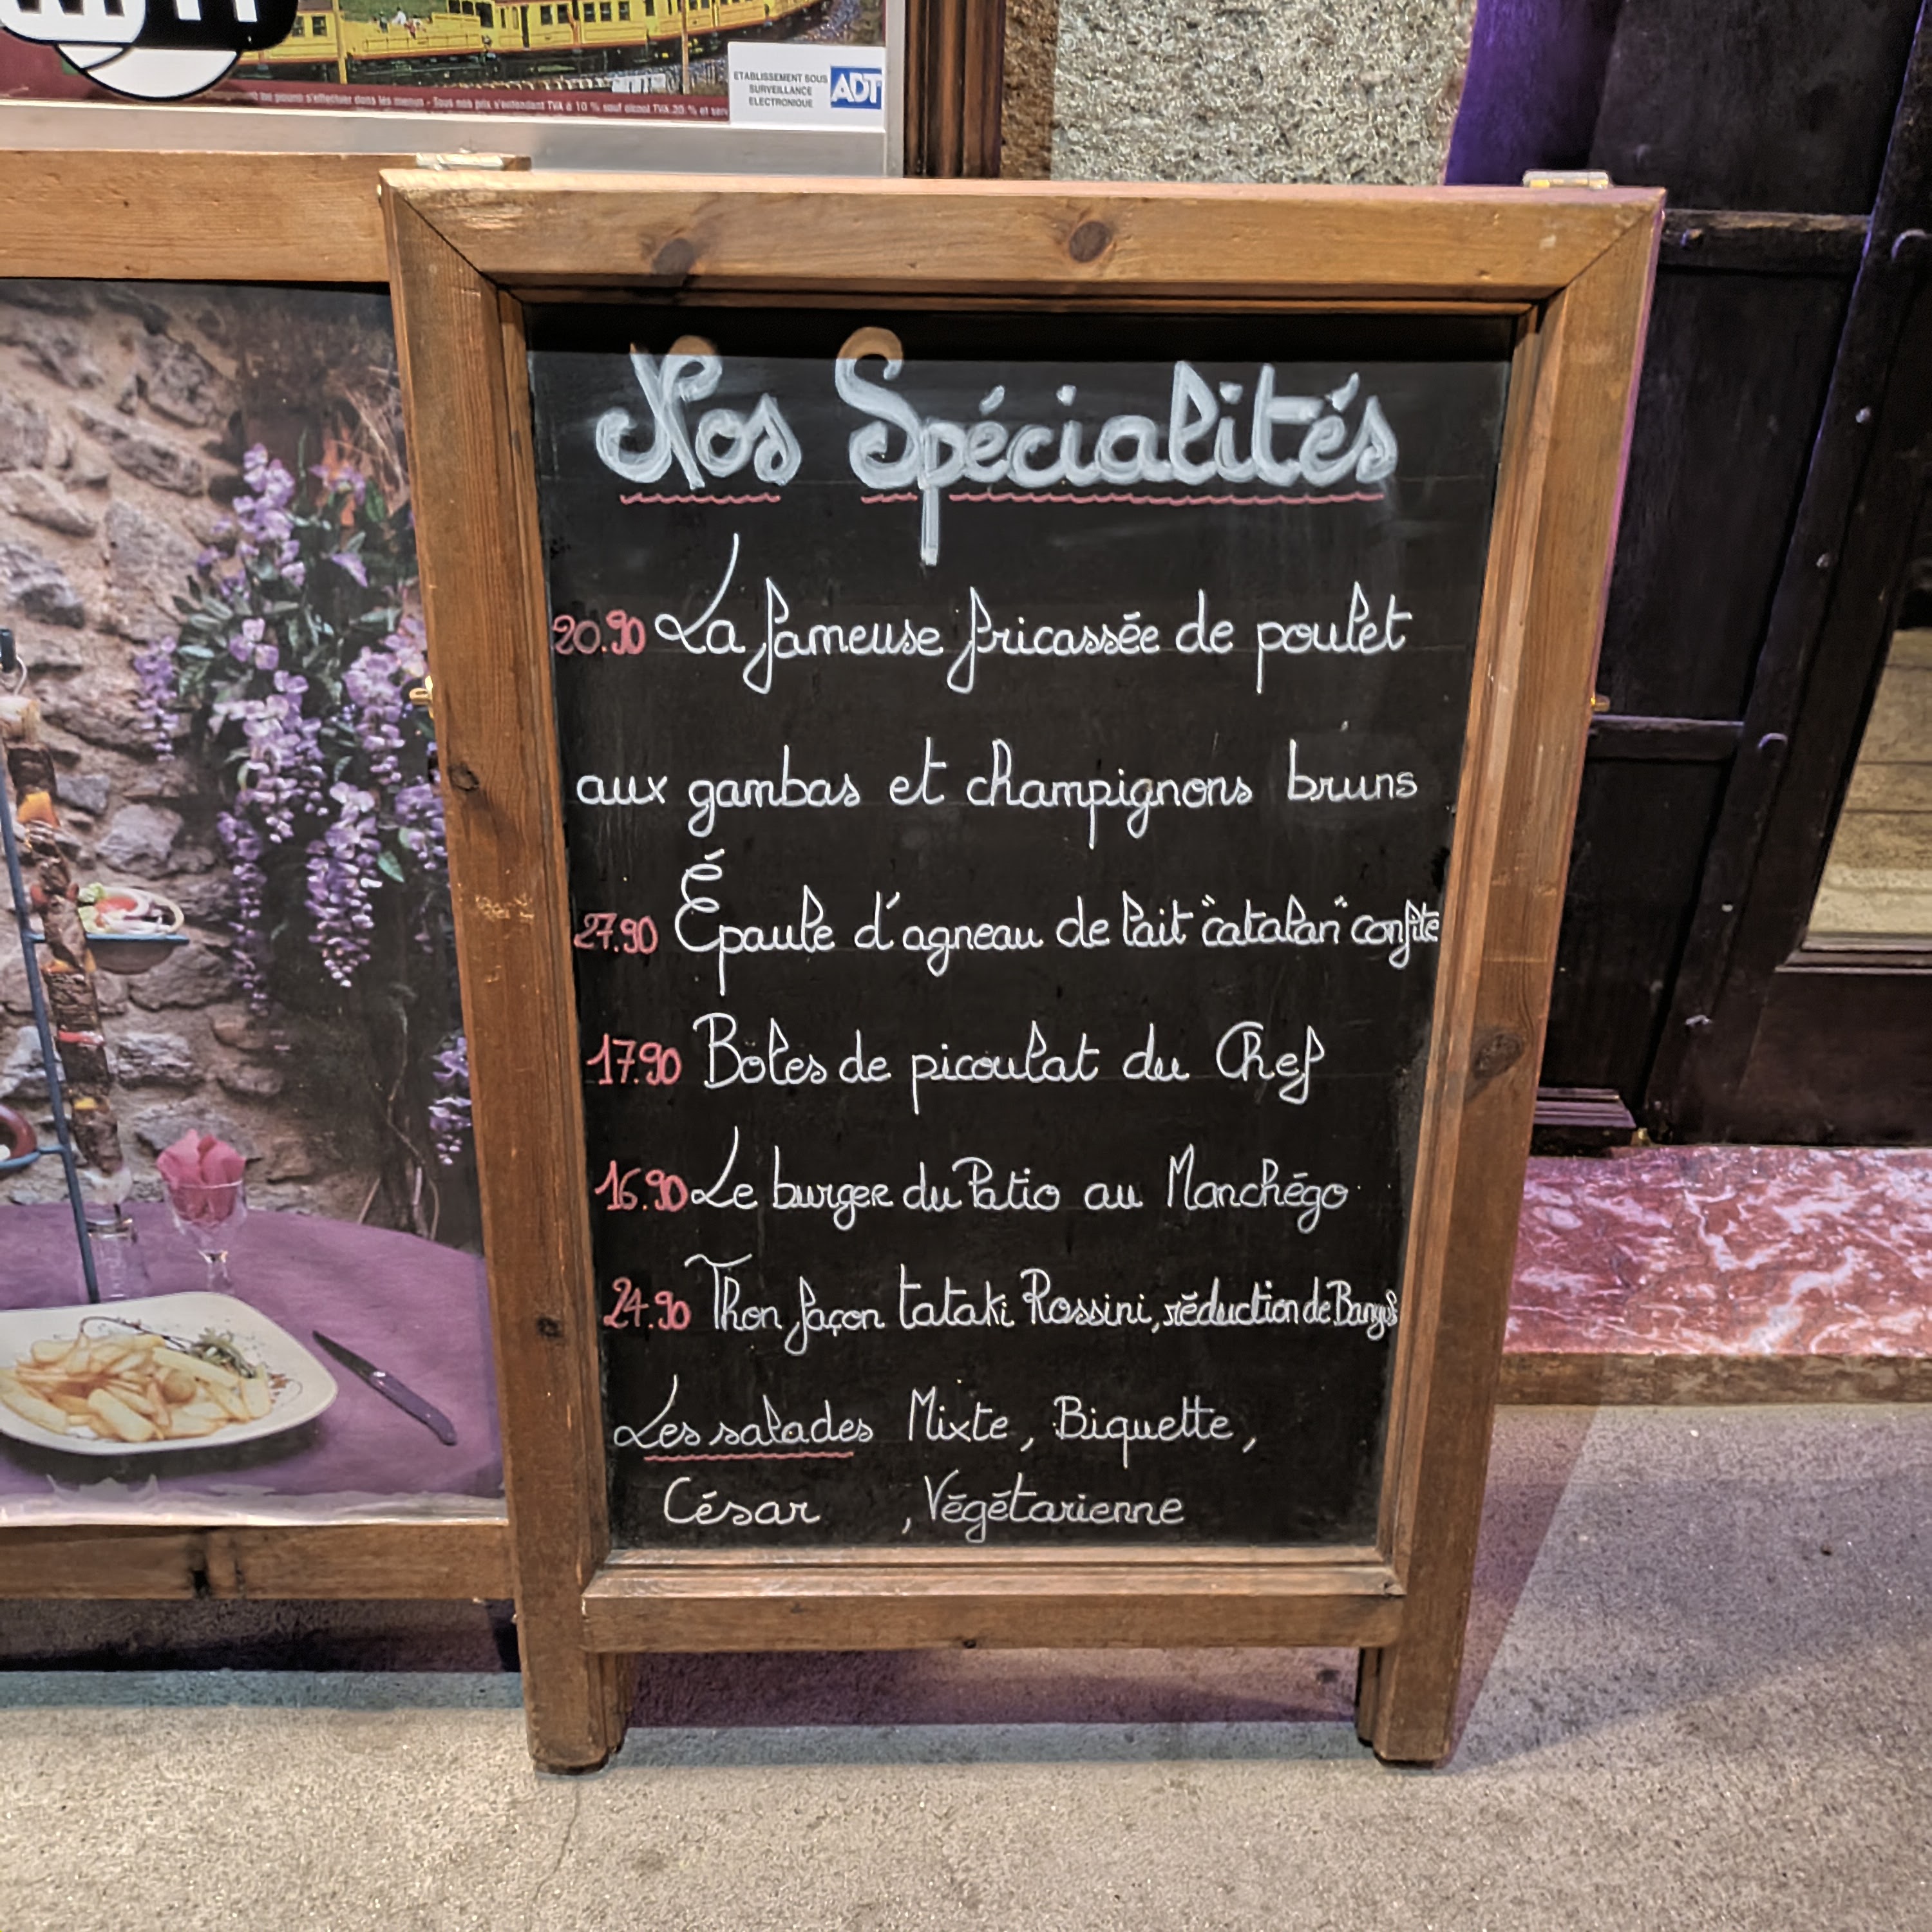 ETABLISSEMENT SOUS
SURVEILLANCE
ELECTRONIQUE
ADT
pourra s'effectuer dans les menus - Tous nos prix s'entendent TVA à 10 % sauf alcool TVA 20 % et
Nos Spécialités
20.90 La fameuse fricassée de poulet
aux gambas et champignons bruns
27.90 Épaule d'agneau de lait "catalan" confite
17.90 Boles de picoulat du Chef
16.90 Le burger du Patio au Manchégo
24.90 Thon façon tataki Rossini, réduction de Banyuls
Les salades Mixte, Biquette,
César , Végétarienne